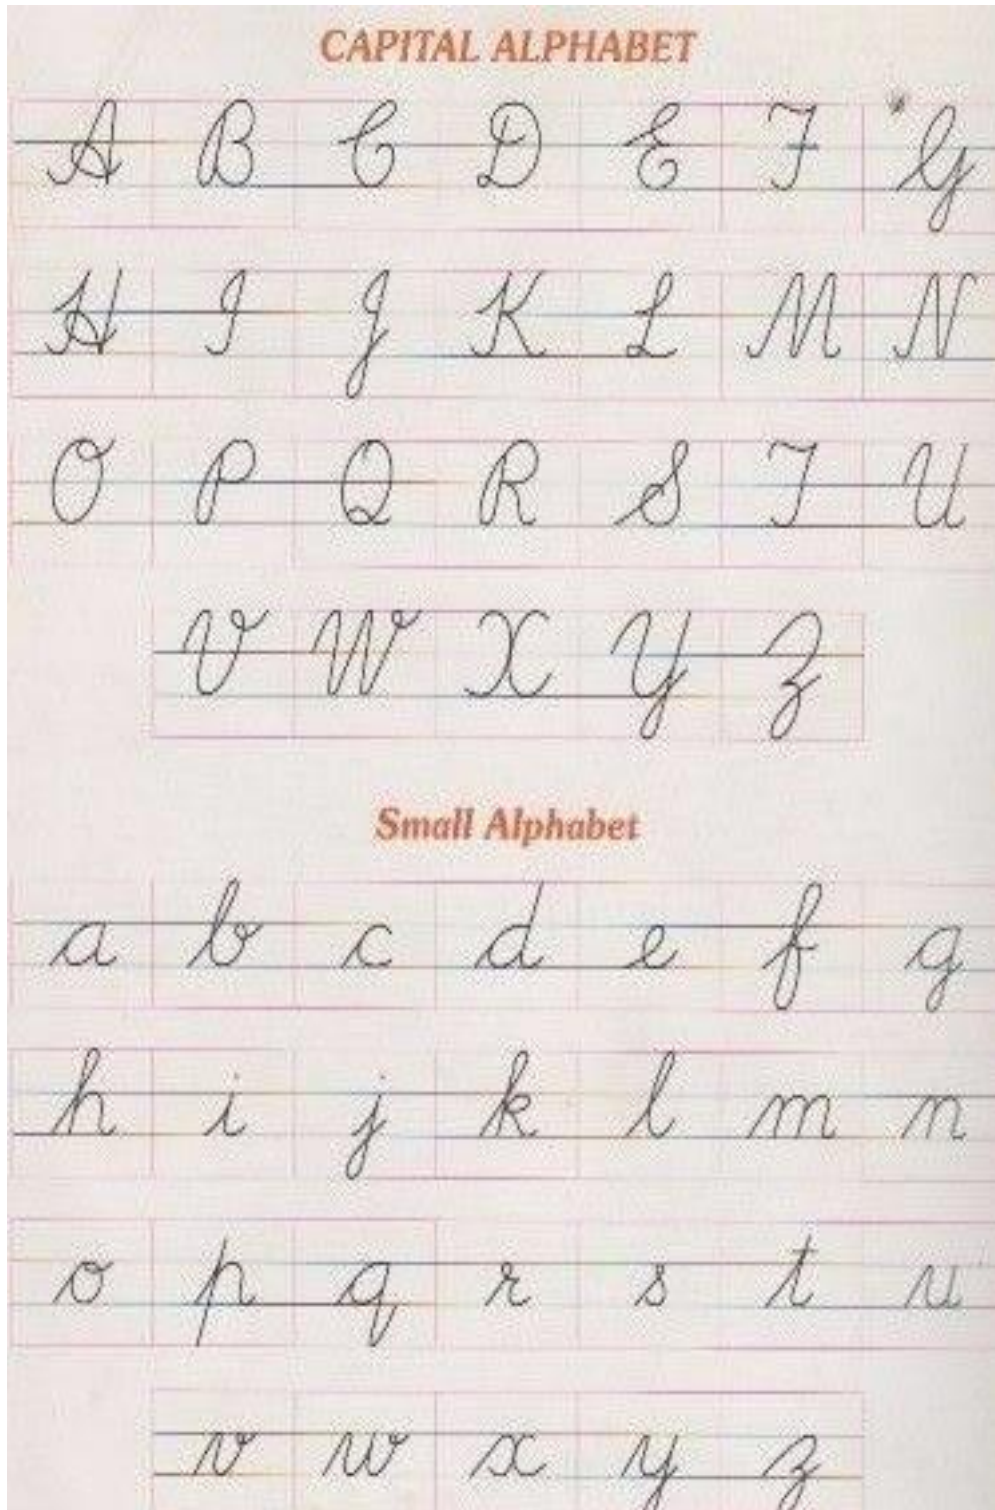 CAPITAL ALPHABET
A B C D E F G
H I J K L M N
O P Q R S T U
V W X Y Z
Small Alphabet
a b c d e f g
h i j k l m n
o p q r s t u
v w x y z